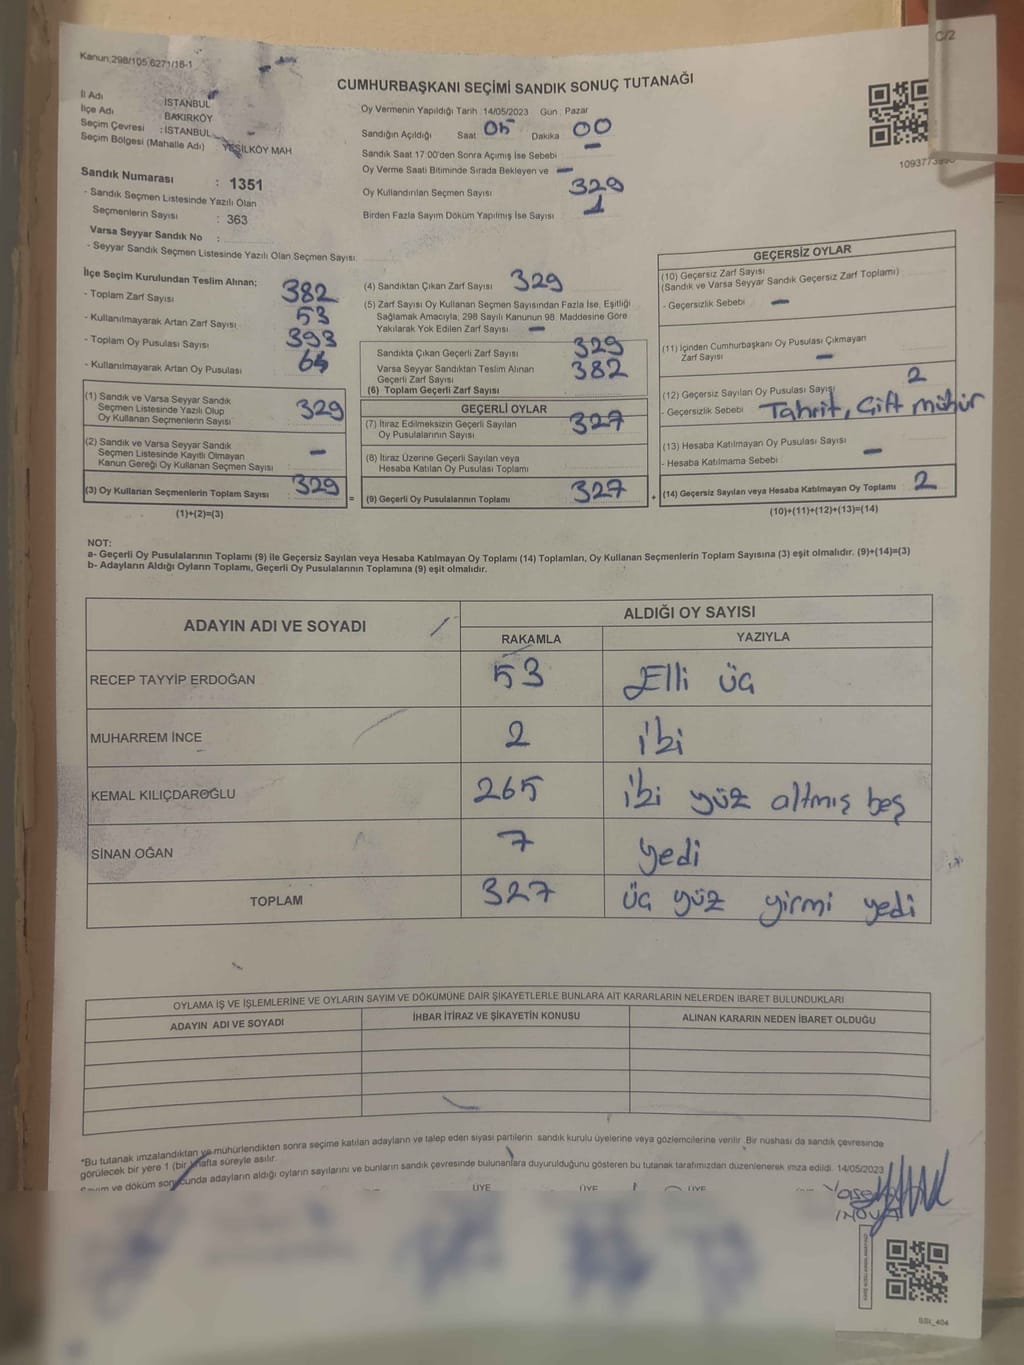 C/2
Kanun,298/105,6271/16-1
CUMHURBAŞKANI SEÇİMİ SANDIK SONUÇ TUTANAĞI
İl Adı İSTANBUL
İlçe Adı BAKIRKÖY
Seçim Çevresi : İSTANBUL
Seçim Bölgesi (Mahalle Adı) YEŞİLKÖY MAH
Sandık Numarası : 1351
- Sandık Seçmen Listesinde Yazılı Olan
Seçmenlerin Sayısı : 363
Varsa Seyyar Sandık No :
- Seyyar Sandık Seçmen Listesinde Yazılı Olan Seçmen Sayısı
Oy Vermenin Yapıldığı Tarih 14/05/2023 Gün : Pazar
Sandığın Açıldığı Saat 05 Dakika 00
Sandık Saat 17:00'den Sonra Açımış İse Sebebi –
Oy Verme Saati Bitiminde Sırada Bekleyen ve –
Oy Kullandırılan Seçmen Sayısı 329
Birden Fazla Sayım Döküm Yapılmış İse Sayısı 1
İlçe Seçim Kurulundan Teslim Alınan;
- Toplam Zarf Sayısı 382
- Kullanılmayarak Artan Zarf Sayısı 53
- Toplam Oy Pusulası Sayısı 393
- Kullanılmayarak Artan Oy Pusulası 64
(1) Sandık ve Varsa Seyyar Sandık
Seçmen Listesinde Yazılı Olup
Oy Kullanan Seçmenlerin Sayısı 329
(2) Sandık ve Varsa Seyyar Sandık
Seçmen Listesinde Kayıtlı Olmayan
Kanun Gereği Oy Kullanan Seçmen Sayısı –
(3) Oy Kullanan Seçmenlerin Toplam Sayısı 329 =
(1)+(2)=(3)
(4) Sandıktan Çıkan Zarf Sayısı 329
(5) Zarf Sayısı Oy Kullanan Seçmen Sayısından Fazla İse, Eşitliği
Sağlamak Amacıyla, 298 Sayılı Kanunun 98. Maddesine Göre
Yakılarak Yok Edilen Zarf Sayısı –
Sandıkta Çıkan Geçerli Zarf Sayısı 329
Varsa Seyyar Sandıktan Teslim Alınan
Geçerli Zarf Sayısı 382
(6) Toplam Geçerli Zarf Sayısı
GEÇERLİ OYLAR
(7) İtiraz Edilmeksizin Geçerli Sayılan
Oy Pusulalarının Sayısı 327
(8) İtiraz Üzerine Geçerli Sayılan veya
Hesaba Katılan Oy Pusulası Toplamı
(9) Geçerli Oy Pusulalarının Toplamı 327 +
GEÇERSİZ OYLAR
(10) Geçersiz Zarf Sayısı
(Sandık ve Varsa Seyyar Sandık Geçersiz Zarf Toplamı)
- Geçersizlik Sebebi –
(11) İçinden Cumhurbaşkanı Oy Pusulası Çıkmayan
Zarf Sayısı –
(12) Geçersiz Sayılan Oy Pusulası Sayısı 2
- Geçersizlik Sebebi Tahrit, Çift mühür
(13) Hesaba Katılmayan Oy Pusulası Sayısı –
- Hesaba Katılmama Sebebi
(14) Geçersiz Sayılan veya Hesaba Katılmayan Oy Toplamı 2
(10)+(11)+(12)+(13)=(14)
NOT:
a- Geçerli Oy Pusulalarının Toplamı (9) ile Geçersiz Sayılan veya Hesaba Katılmayan Oy Toplamı (14) Toplamları, Oy Kullanan Seçmenlerin Toplam Sayısına (3) eşit olmalıdır. (9)+(14)=(3)
b- Adayların Aldığı Oyların Toplamı, Geçerli Oy Pusulalarının Toplamına (9) eşit olmalıdır.
ADAYIN ADI VE SOYADI ALDIĞI OY SAYISI
RAKAMLA YAZIYLA
RECEP TAYYİP ERDOĞAN 53 Elli üç
MUHARREM İNCE 2 iki
KEMAL KILIÇDAROĞLU 265 iki yüz altmış beş
SİNAN OĞAN 7 yedi
TOPLAM 327 üç yüz yirmi yedi
OYLAMA İŞ VE İŞLEMLERİNE VE OYLARIN SAYIM VE DÖKÜMÜNE DAİR ŞİKAYETLERLE BUNLARA AİT KARARLARIN NELERDEN İBARET BULUNDUKLARI
ADAYIN ADI VE SOYADI İHBAR İTİRAZ VE ŞİKAYETİN KONUSU ALINAN KARARIN NEDEN İBARET OLDUĞU
*Bu tutanak imzalandıktan ve mühürlendikten sonra seçime katılan adayların ve talep eden siyasi partilerin sandık kurulu üyelerine veya gözlemcilerine verilir. Bir nüshası da sandık çevresinde
görülecek bir yere 1 (bir) hafta süreyle asılır.
Sayım ve döküm sonucunda adayların aldığı oyların sayılarını ve bunların sandık çevresinde bulunanlara duyurulduğunu gösteren bu tutanak tarafımızdan düzenlenerek imza edildi. 14/05/2023
ÜYE ÜYE ÜYE
SSt_404